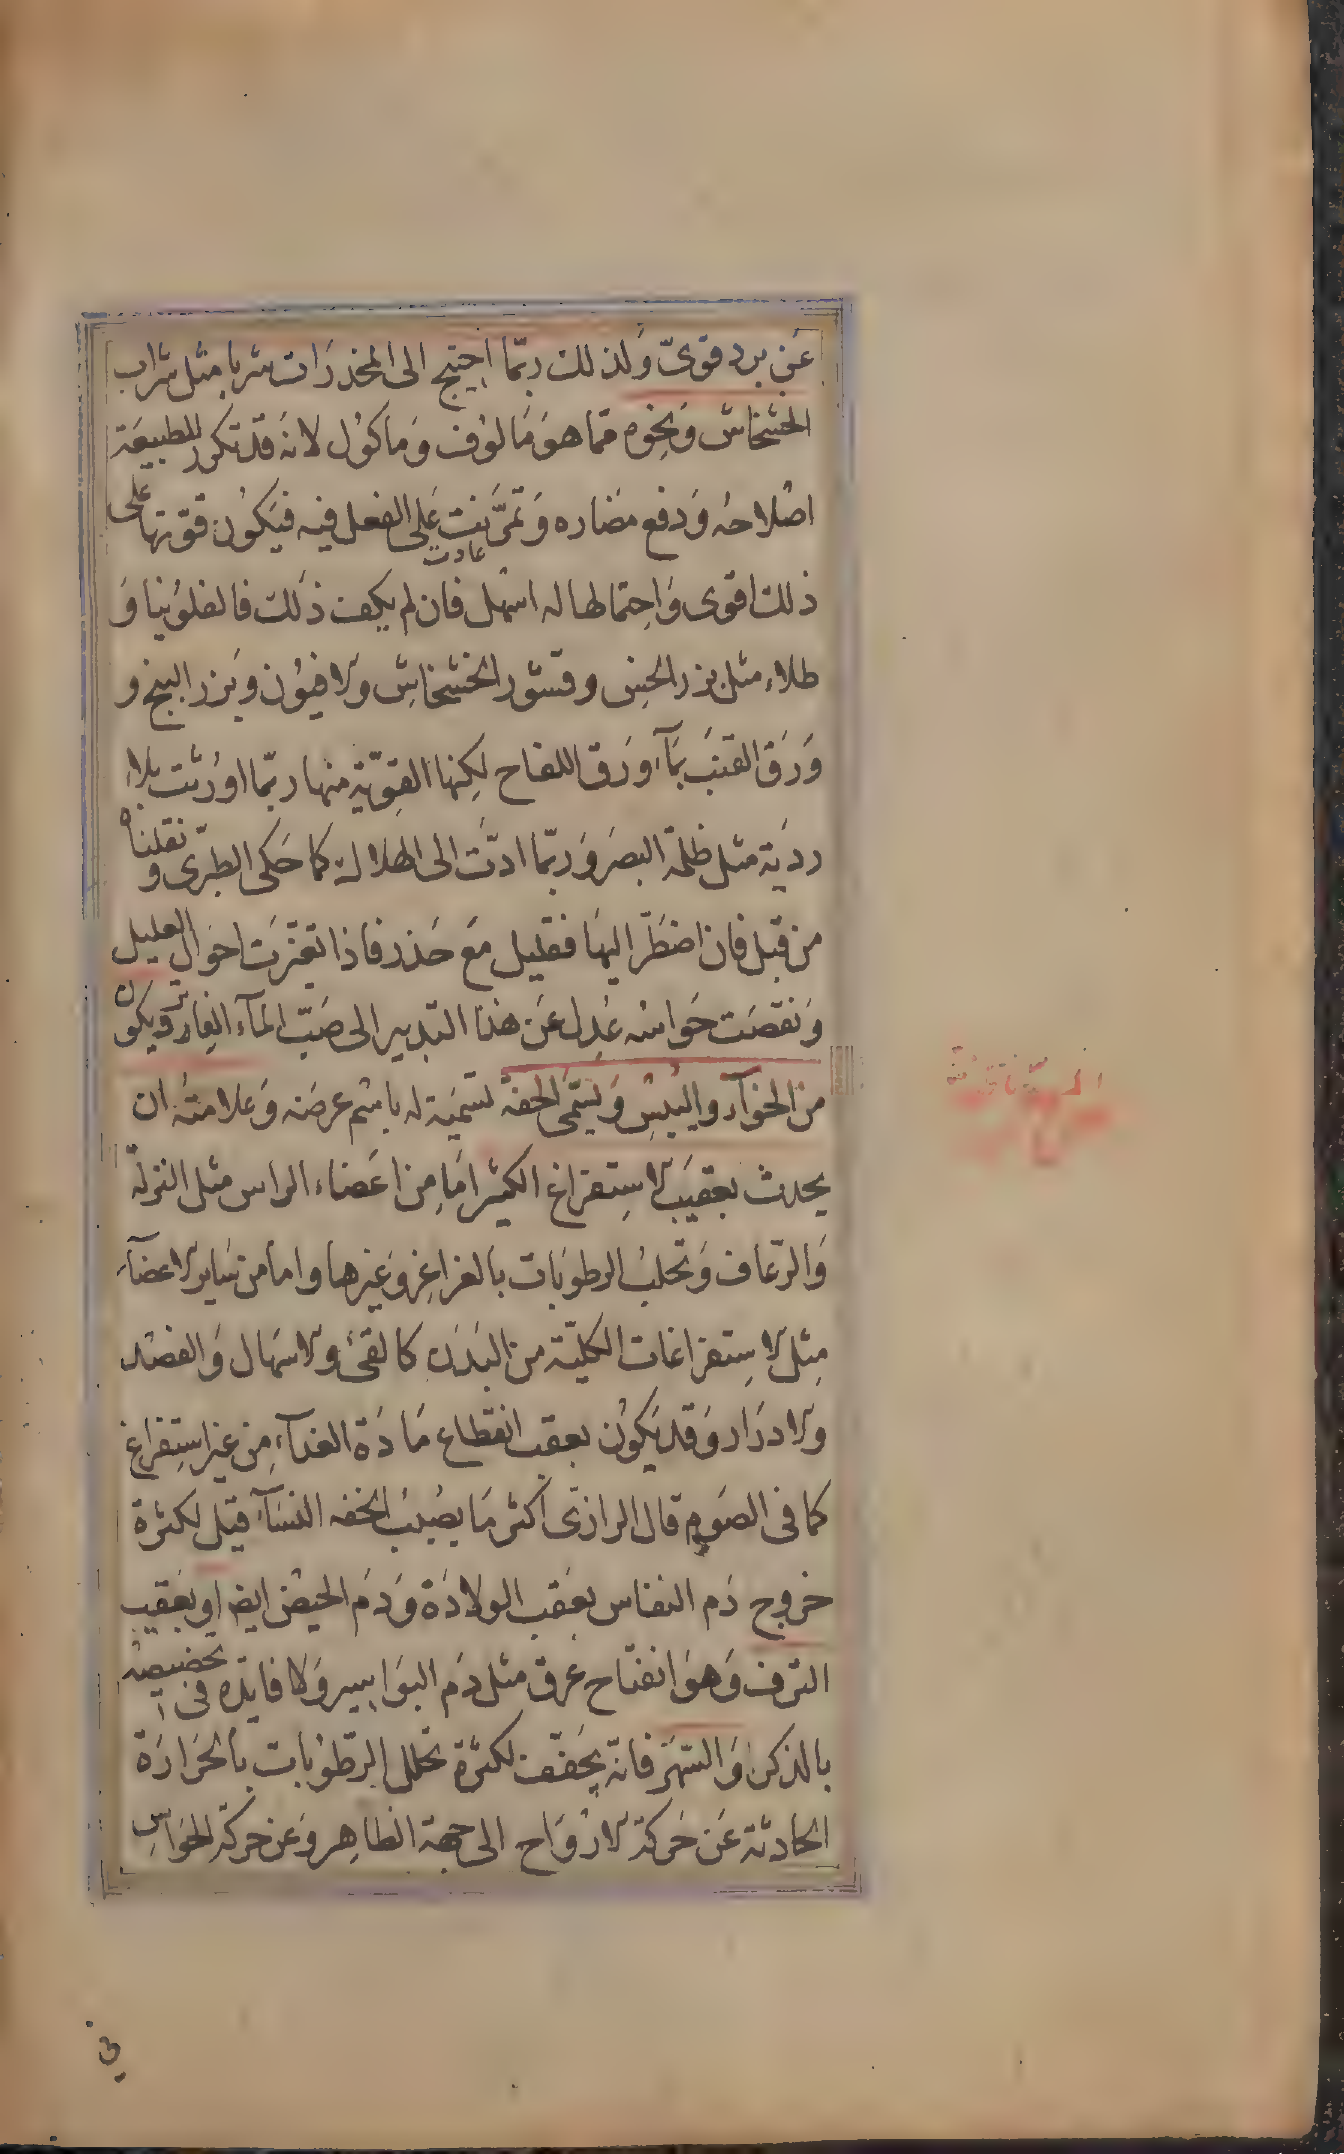 عَن برد قوىّ وَلذلك ربّما اِحتيج الى المخدرَات شربا مثل شراب
الخشخاش وَنحوه ممّا هوَ مَالوُف وَماكوُل لانه قد تكرر للطبيعَة
اصْلاحه وَدفع مضاره وَتمرَّنت عَلى الفعل فيه فيَكوُن قوّتها على
عادت
ذلك اقوى وَاحِتمالها له اسْهل فان لم يكف ذَلك فالفلوُنيا وَ
طلاء مثل بزر الخس وقشور الخشخاش والافيوُن وبَزر البنج و
وَرَق القنب بمَآء وَرَق اللفاح لكِنها القوِيّة منها ربّما اوُرثت بلاء
رديَة مثل ظلمة البصَر وَربّما ادّت الى الهلاك كما حَكى الطبّرى و نقلناه
من قبل فان اضطَرّ اليهَا فقليل مَع حَذر فاذا تغيّرت احوَال العليل
وَنقصَت حَواسُه عُدِل عَن هذا التدبير الى صَبّ المآء الفِاتر ويكون
من الخوآء واليُبسِ وَيسَمّى الخفة تسَميَة له باسْم عرضَه وَعلامتهُ ان
يحدث بعقيَب الاسِتفراغ الكثير امَا مِن اعَضاء الراس مثل النزلة
وَالرّعاف وَتحلبُ الرطوبَات بالغراغِر وَغيرها واما من سَاير الاعضآء
مِثل الاسِتفراغات الكليّة من البَدَن كالقئ والاسهَال وَالفصْد
والادرَار وَقد يَكوُن بعقب انقطاع مَادَة الغذآءِ مِن غير استِفراغ
كما فى الصَوم قال الرازى اكثر مَا يصُيبُ الخفه النسَآء قيل لكثرة
خروج دَم النفاس بعَقب الولادَة وَدَم الحيْض ايضا او بعَقيب
النزف وَهوَ انفتاح عرق مثل دَم البوَاسير وَلا فايدَه فى تخصيصه
بالذكر وَالسّهرَ فانه يجَفف لكثرة تحلل الرّطوُبات بالحَرارَة
الحادثة عَن حَركة الارْوَاح الى جهة الظاهِر وَعن حركة الحوَاسِ